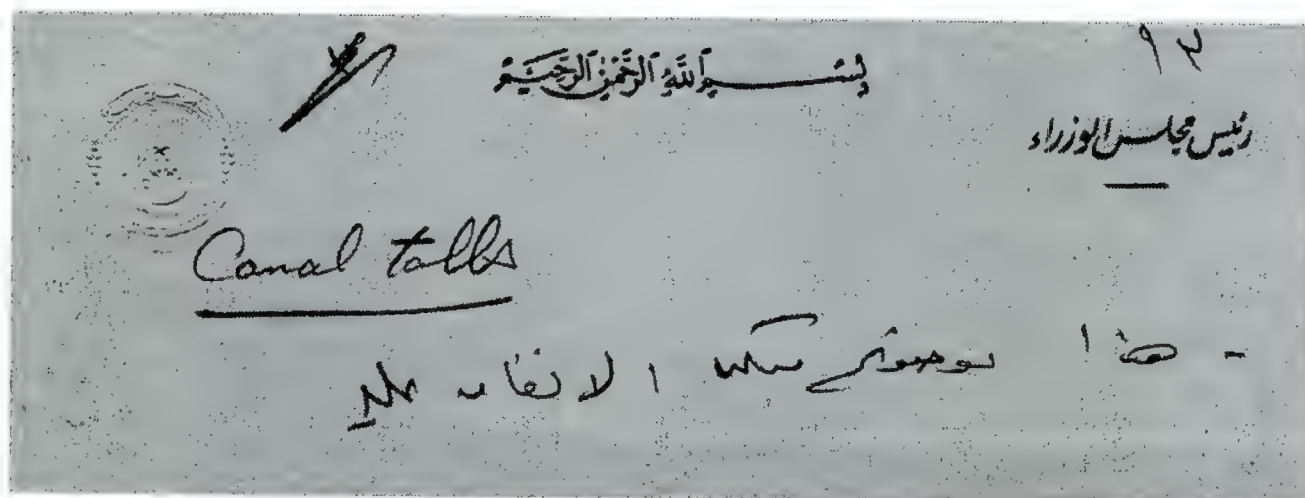 ٩٣
بسم الله الرحمن الرحيم
رئيس مجلس الوزراء
Canal tolls
- هذا موضوع يمكن الاتفاق عليه